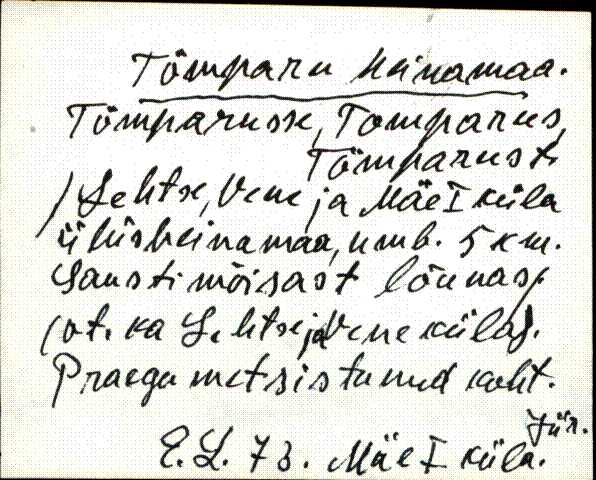 Tõmparu heinamaa.
Tõmparusse, Tõmparus,
Tõmparust.
/Sehtse, Vene ja Mäe I küla
ühisheinamaa, umb. 5 km.
Sausti mõisast lõunas/
(vt. ka Sehtse ja Vene külas).
Praegu metsistunud koht.
Jür.
E.L. 73. Mäe I küla.